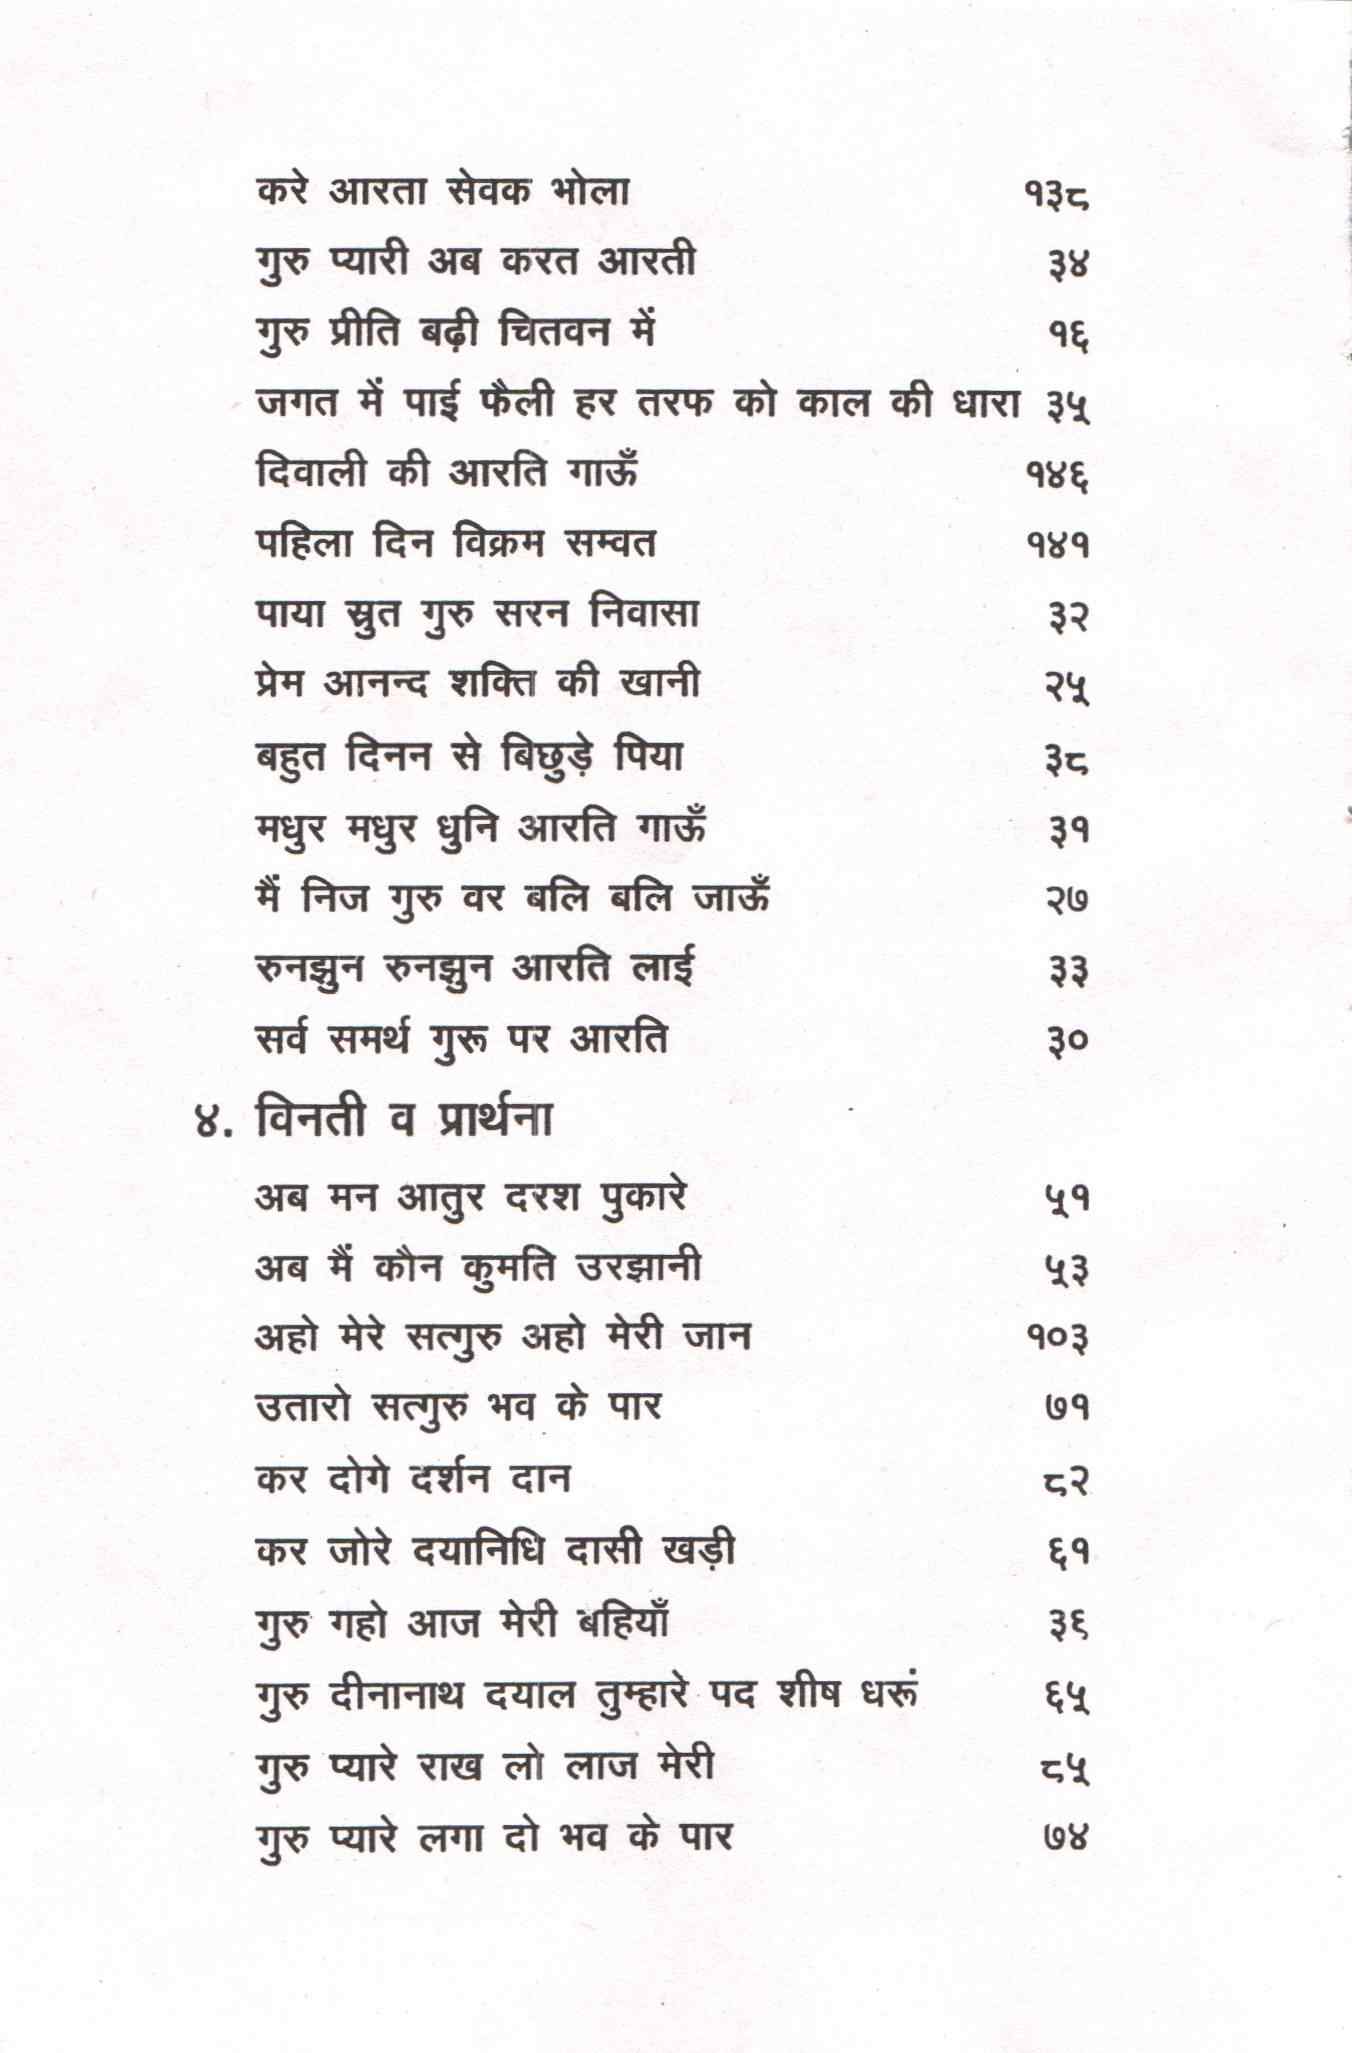 करे आरता सेवक भोला १३८
गुरु प्यारी अब करत आरती ३४
गुरु प्रीति बढ़ी चितवन में १६
जगत में पाई फैली हर तरफ को काल की धारा ३५
दिवाली की आरति गाऊँ १४६
पहिला दिन विक्रम सम्वत १४१
पाया स्रुत गुरु सरन निवासा ३२
प्रेम आनन्द शक्ति की खानी २५
बहुत दिनन से बिछुड़े पिया ३८
मधुर मधुर धुनि आरति गाऊँ ३१
मैं निज गुरु वर बलि बलि जाऊँ २७
रुनझुन रुनझुन आरति लाई ३३
सर्व समर्थ गुरू पर आरति ३०
४. विनती व प्रार्थना
अब मन आतुर दरश पुकारे ५१
अब मैं कौन कुमति उरझानी ५३
अहो मेरे सत्गुरु अहो मेरी जान १०३
उतारो सत्गुरु भव के पार ७१
कर दोगे दर्शन दान ८२
कर जोरे दयानिधि दासी खड़ी ६१
गुरु गहो आज मेरी बहियाँ ३९
गुरु दीनानाथ दयाल तुम्हारे पद शीष धरूं ६५
गुरु प्यारे राख लो लाज मेरी ८५
गुरु प्यारे लगा दो भव के पार ७४